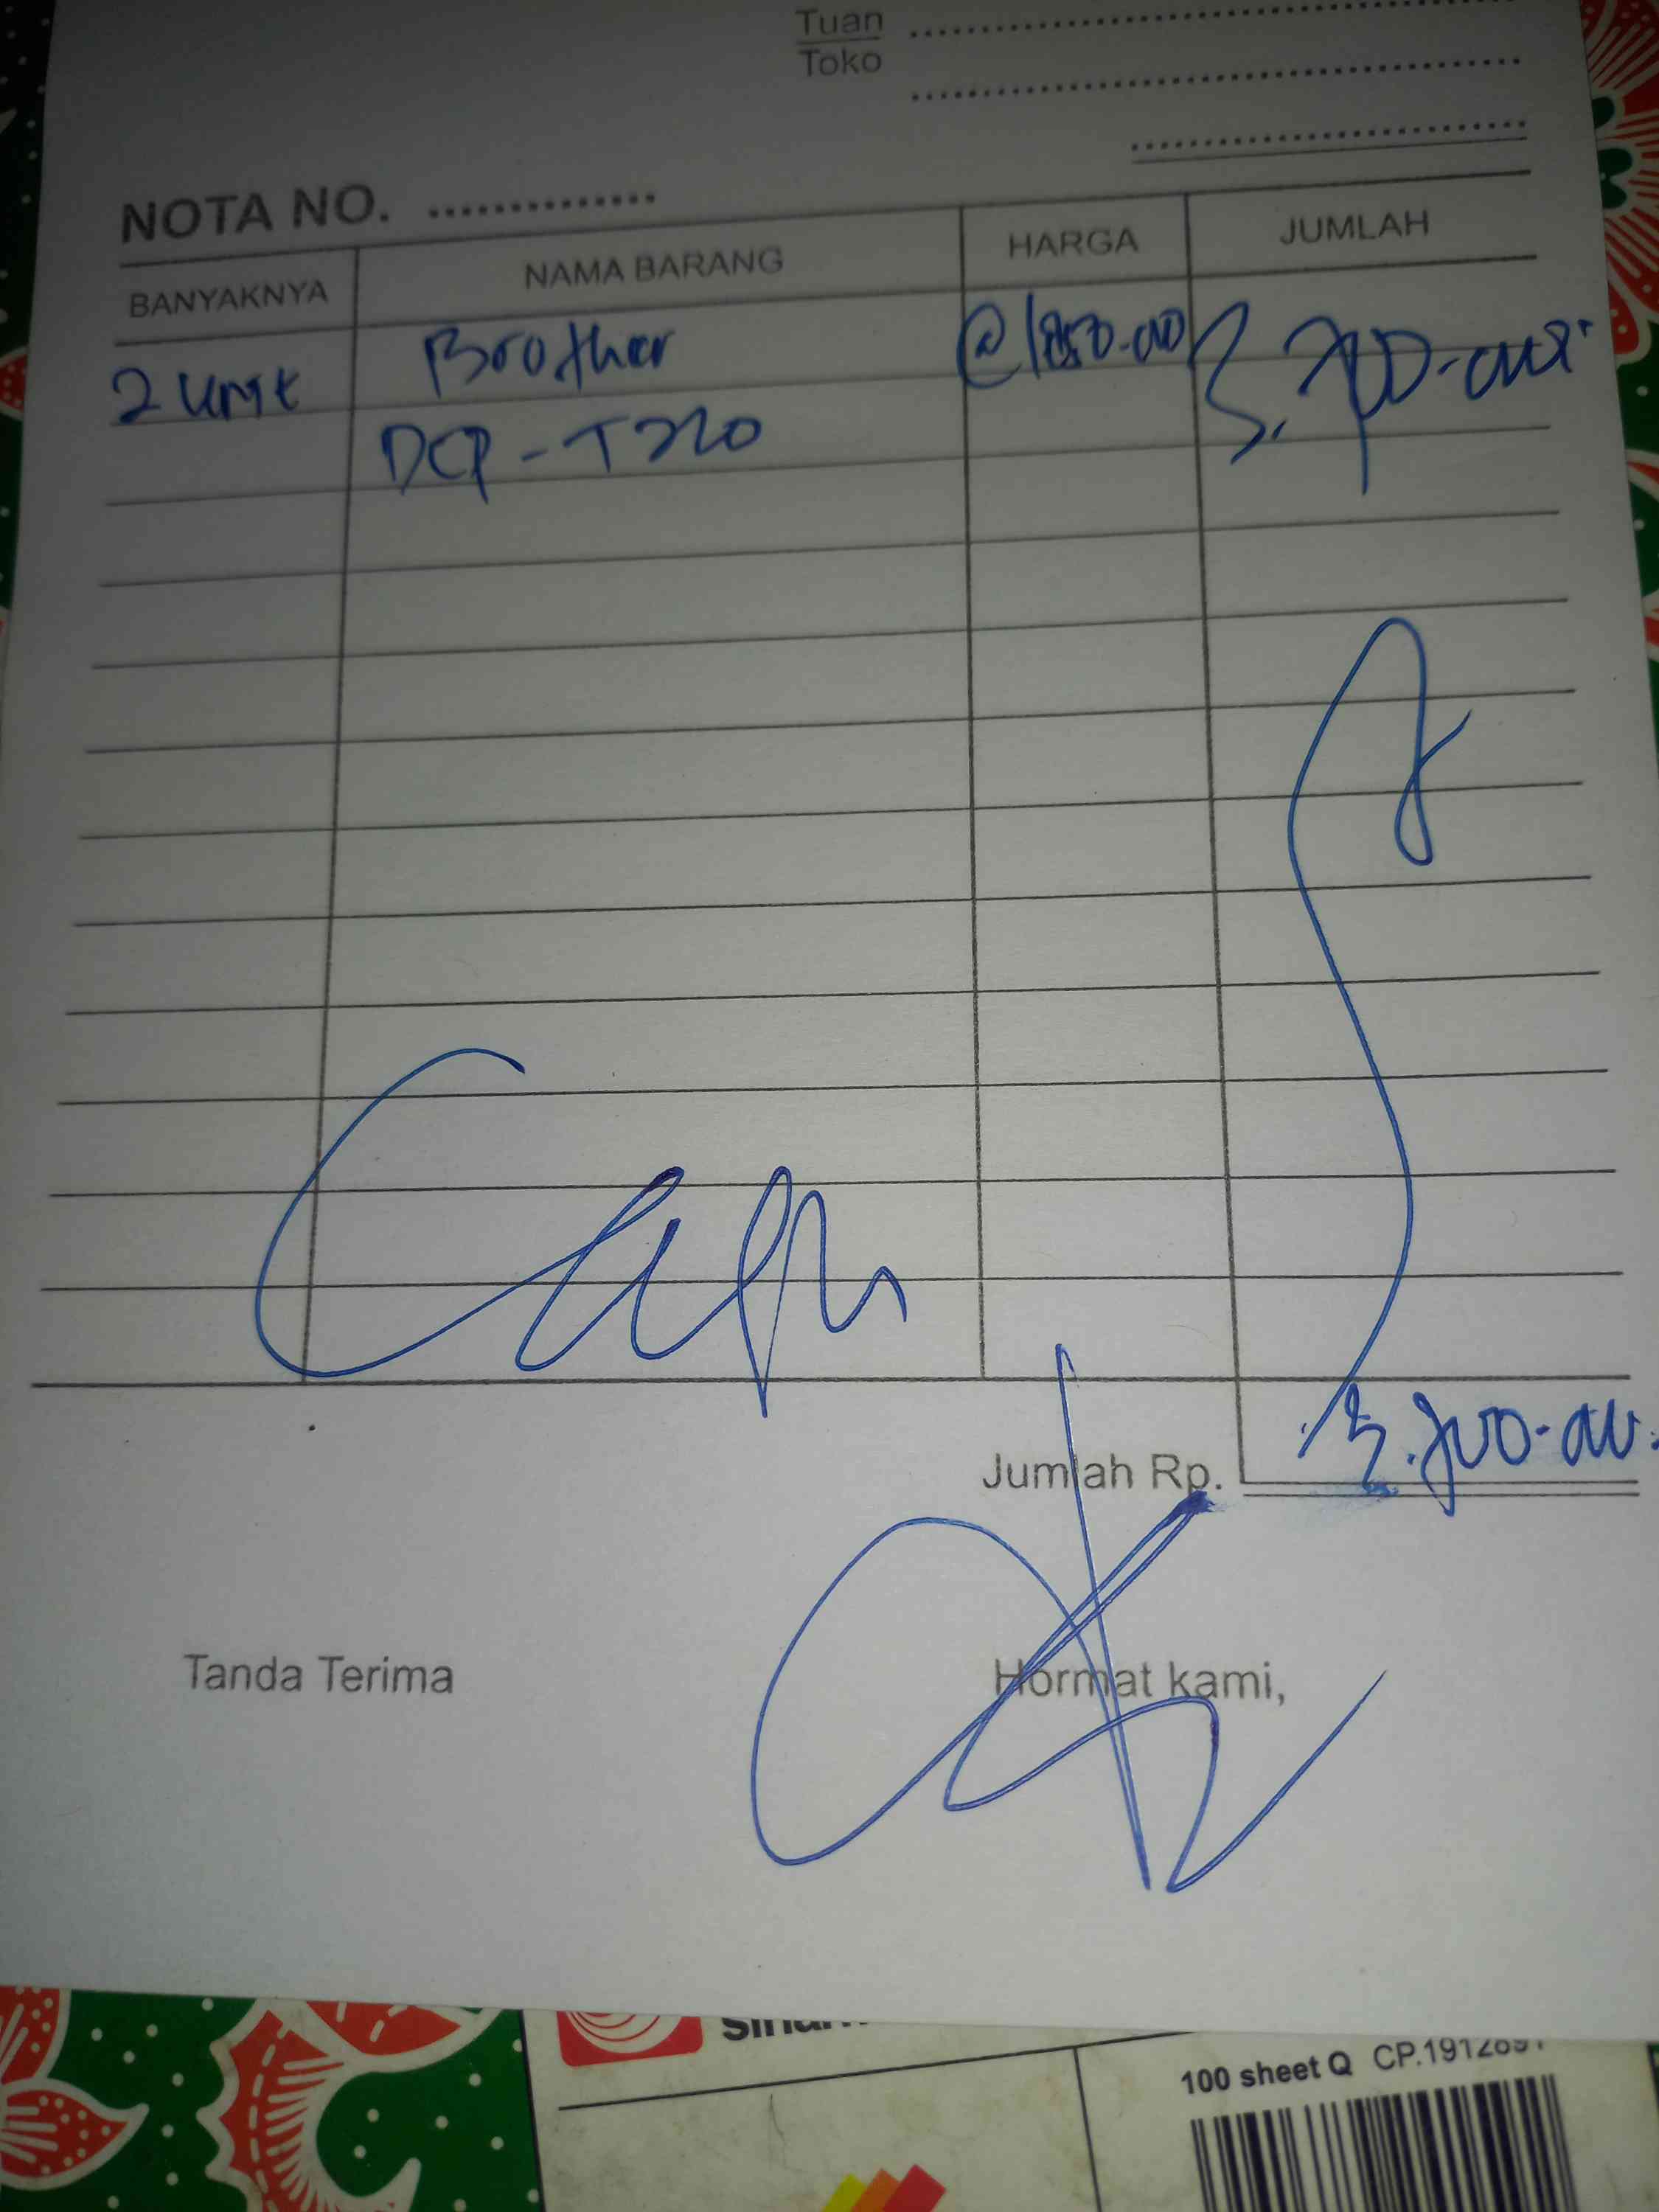 Tuan
Toko
NOTA NO. ..............
BANYAKNYA NAMA BARANG HARGA JUMLAH
2 unit Brother @1850.000 3.700.000
DCP-T220
Jumlah Rp. 3.700.000
Tanda Terima Hormat kami,
100 sheet Q